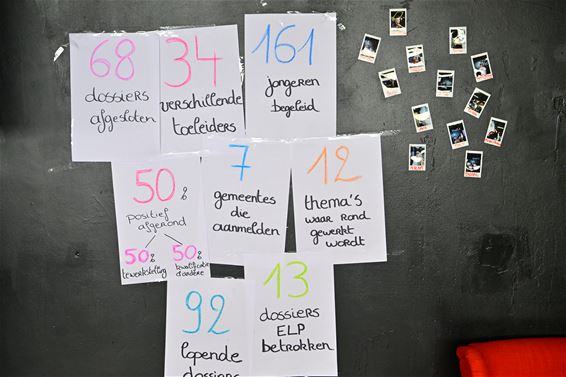 68
dossiers
afgesloten
34
verschillende
toeleiders
161
jongeren
begeleid
50%
positief
afgerond
50%
tewerkstelling
50%
7
gemeentes
die
aanmelden
12
thema's
waar rond
gewerkt
wordt
92
lopende
dossiers
13
dossiers
ELP
betrokken